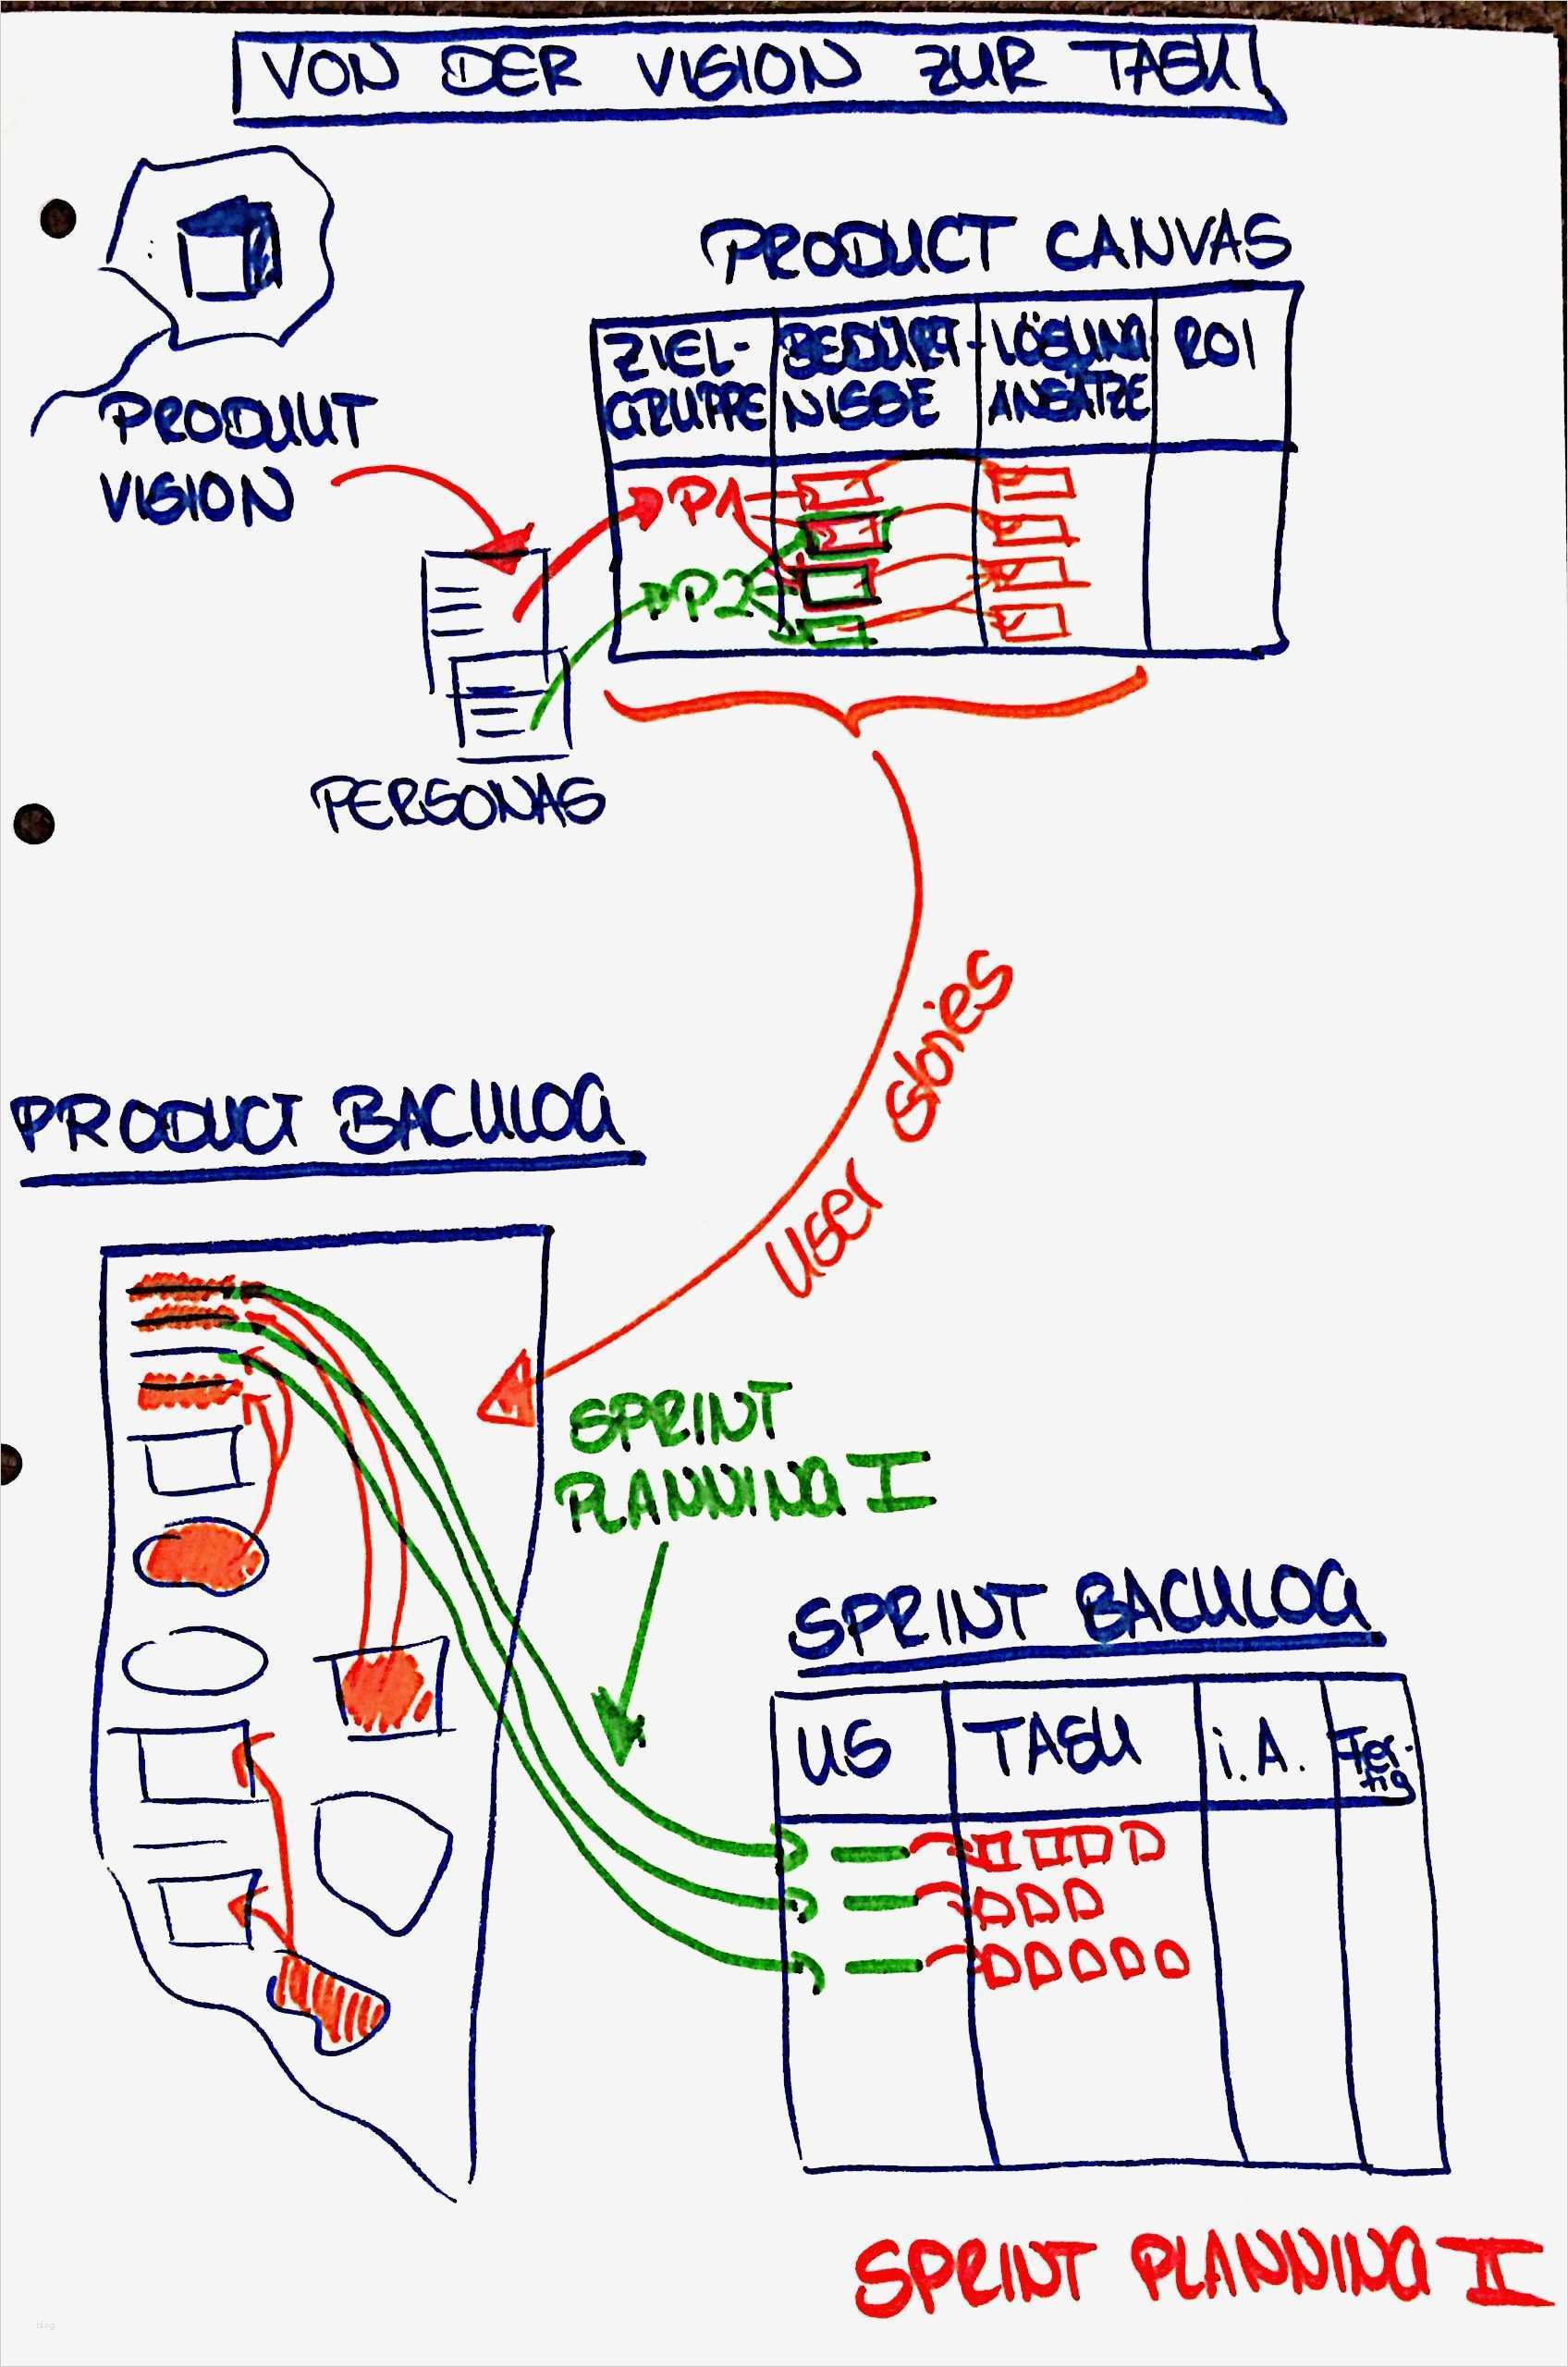 VON DER VISION ZUR TASK
PRODUCT CANVAS
ZIEL-
GRUPPE
BEDÜRF-
NISSE
LÖSUNG
ANSÄTZE
ROI
PRODUKT
VISION
P1
P2
PERSONAS
User Stories
PRODUCT BACKLOG
SPRINT
PLANNING I
SPRINT BACKLOG
US
TASK
i.A.
Fer-
tig
SPRINT PLANNING II
blog